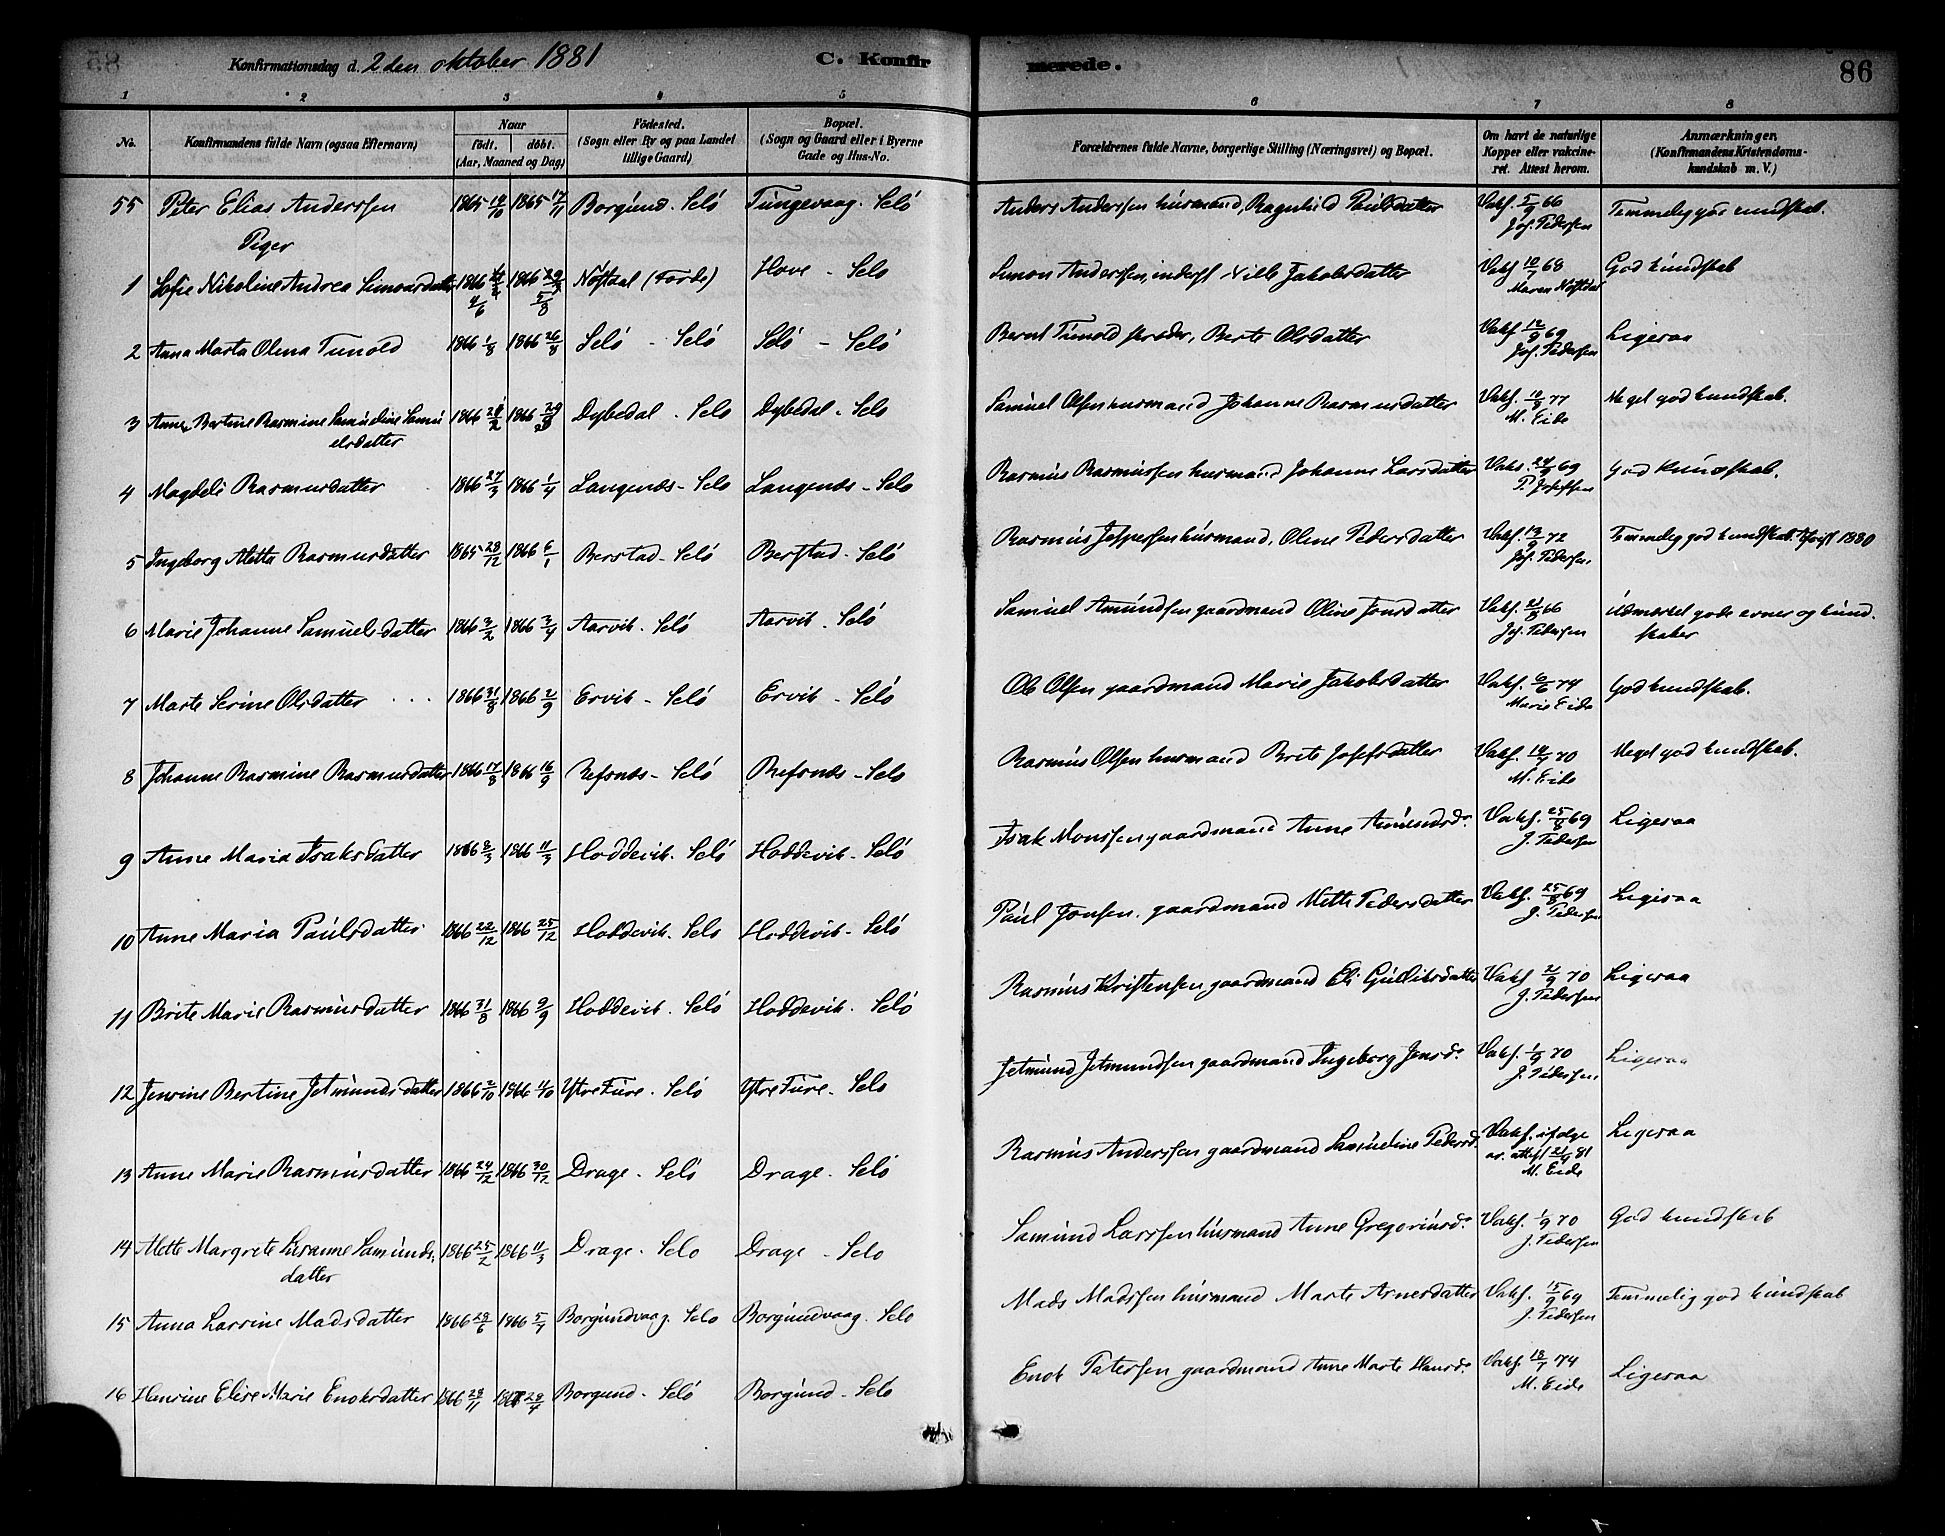 Konfirmationsdag d. 2den oktober 1881 C. Konfir merede. 86
1 2 3 4 5 6 7 8
No. Konfirmandens fulde Navn (ogsaa Efternavn) Naar født. døbt. (Aar, Maaned og Dag) Födested. (Sogn eller By og paa Landet tillige Gaard) Bopæl. (Sogn og Gaard eller i Byerne Gade og Hus-No. Forældrenes fulde Navne, borgerlige Stilling (Næringsvei) og Bopæl. Om havt de naturlige Kopper eller vakcineret. Attest herom. Anmærkninger. (Konfirmandens Kristendomskundskab m. V.)
55 Peter Elias Anderssen 1865 19/10 1865 17/11 Borgund. Selö Tungevaag. Selö Anders Anderssen husmand, Ragnhild Paulsdatter Vakf. 5/9 66 Jos. Pedersen Temmelig god kundskab.
Piger
1 Sofie Nikoline Andrea Simonsdatter 1866 4/6 1866 5/8 Nöstdal (Förde) Hove - Selö Simon Anderssen, inderst Nille Jakobsdatter Vakf. 10/7 68 Maren Nöstdal God kundskab
2 Anna Marta Olena Tunold 1866 1/8 1866 26/8 Selö - Selö Selö - Selö Bernt Tunold, Berte Olsdatter Vakf. 12/9 69 Jos. Pedersen Ligesaa
3 Anne Bertine Rasmine Samueline Samuelsdatter 1866 28/2 1866 Dybedal - Selö Dybedal - Selö Samuel Olsen husmand Johanne Rasmusdatter Vakf. 10/8 77 M. Eide Meget god kundskab.
4 Magdeli Rasmusdatter 1866 27/3 1866 1/4 Langenæs - Selö Langenæs - Selö Rasmus Rasmussen husmand Johanne Larsdatter Vaks. 24/9 69 P. Josefsen God kundskab.
5 Ingeborg Aletta Rasmusdatter 1865 28/12 1866 6/1 Berstad - Selö Berstad - Selö Rasmus Jeppersen husmand, Oline Pedersdatter Vakf. 19/9 72 Jos. Pedersen. Temmelig god kundskab. 1880
6 Marie Johanne Samuelsdatter 1866 3/2 1866 3/4 Aarvik - Selö Aarvik - Selö Samuel Amundsen gaardmand Oline Jonsdatter Vakf. 21/8 66 Jos. Pedersen Udmærket gode evner og kundskaber
7 Marte Serine Olsdatter 1866 31/8 1866 2/9 Ervik - Selö Ervik - Selö Ole Olsen gaardmand Marie Jakobsdatter Vakf. 6/6 74 Marie Eide God kundskab.
8 Johanne Rasmine Rasmusdatter 1866 17/8 1866 16/9 Refsnæs - Selö Refsnæs - Selö Rasmus Olsen husmand Brite Josefsdatter Vakf. 70 M. Eide Meget god kundskab.
9 Anne Maria Isaksdatter 1866 2/3 1866 11/3 Hoddevik - Selö Hoddevik - Selö Isak Monssen gaardmand Anne Amundsd. Vakf. 25/8 69 J. Pedersen Ligesaa
10 Anne Maria Paulsdatter 1866 22/12 1866 25/12 Hoddevik - Selö Hoddevik - Selö Paul Jonsen. gaardmand Mette Pedersdatter Vakf. 25/8 69 J. Pedersen Ligesaa
11 Brite Marie Rasmusdatter 1866 31/8 1866 9/9 Hoddevik - Selö Hoddevik - Selö Rasmus Kristensen gaardmand Eli Gulliksdatter Vakf. 2/9 70 J. Pedersen Ligesaa
12 Jensine Bertine Jetmundsdatter 1866 2/10 1866 4/10 Ytre Fure - Selö Ytre Fure - Selö Jetmund Jetmundsen gaardmand Ingeborg Jensd. Vakf. 1/9 70 J. Pedersen. Ligesaa
13 Anne Marie Rasmusdatter 1866 24/12 1866 30/12 Drage - Selö Drage - Selö Rasmus Anderssen gaardmand Samueline Pedersd. Vakf. ifølge attest 81 M. Eide Ligesaa
14 Mette Margrete Susanne Samundsdatter 1866 25/2 1866 11/3 Drage - Selö Drage - Selö Samund Larssen husmand Anne Gregoriusd. Vakf. 1/9 70 J. Pedersen God kundskab
15 Anna Larsine Madsdatter 1866 28/6 1866 5/7 Borgundvaag. Selö Borgundvaag. Selö Mads Madssen husmand Marte Arnesdatter Vakf. 15/9 69 J. Pedersen Temmelig god kundskab
16 Henrine Elise Marie Enoksdatter 1866 28/11 1867 28/4 Borgund - Selö Borgund - Selö Enok Petersen gaardmand Anne Marte Hansd. Vakf. 18/7 74 M. Eide Ligesaa